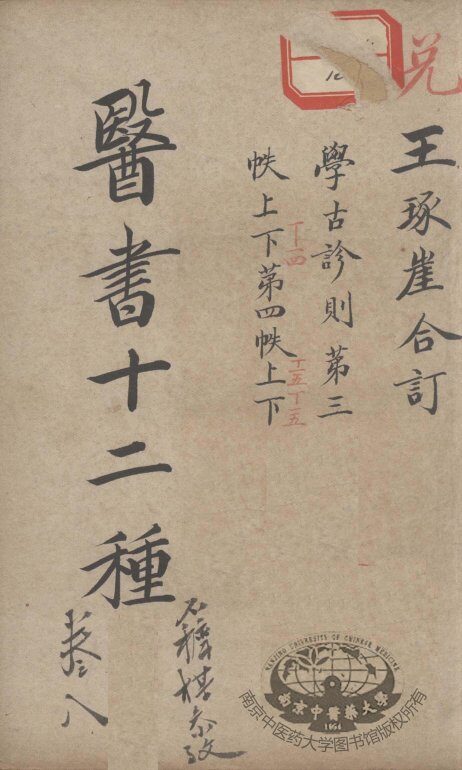 兑
王琢崖合訂
學古診則第三
帙上下第四帙上下
丁四
丁五丁五
醫書十二種
八
NANJING UNIVERSITY OF CHINESE MEDICINE
南京中醫藥大學
1954
南京中医药大学图书馆版权所有